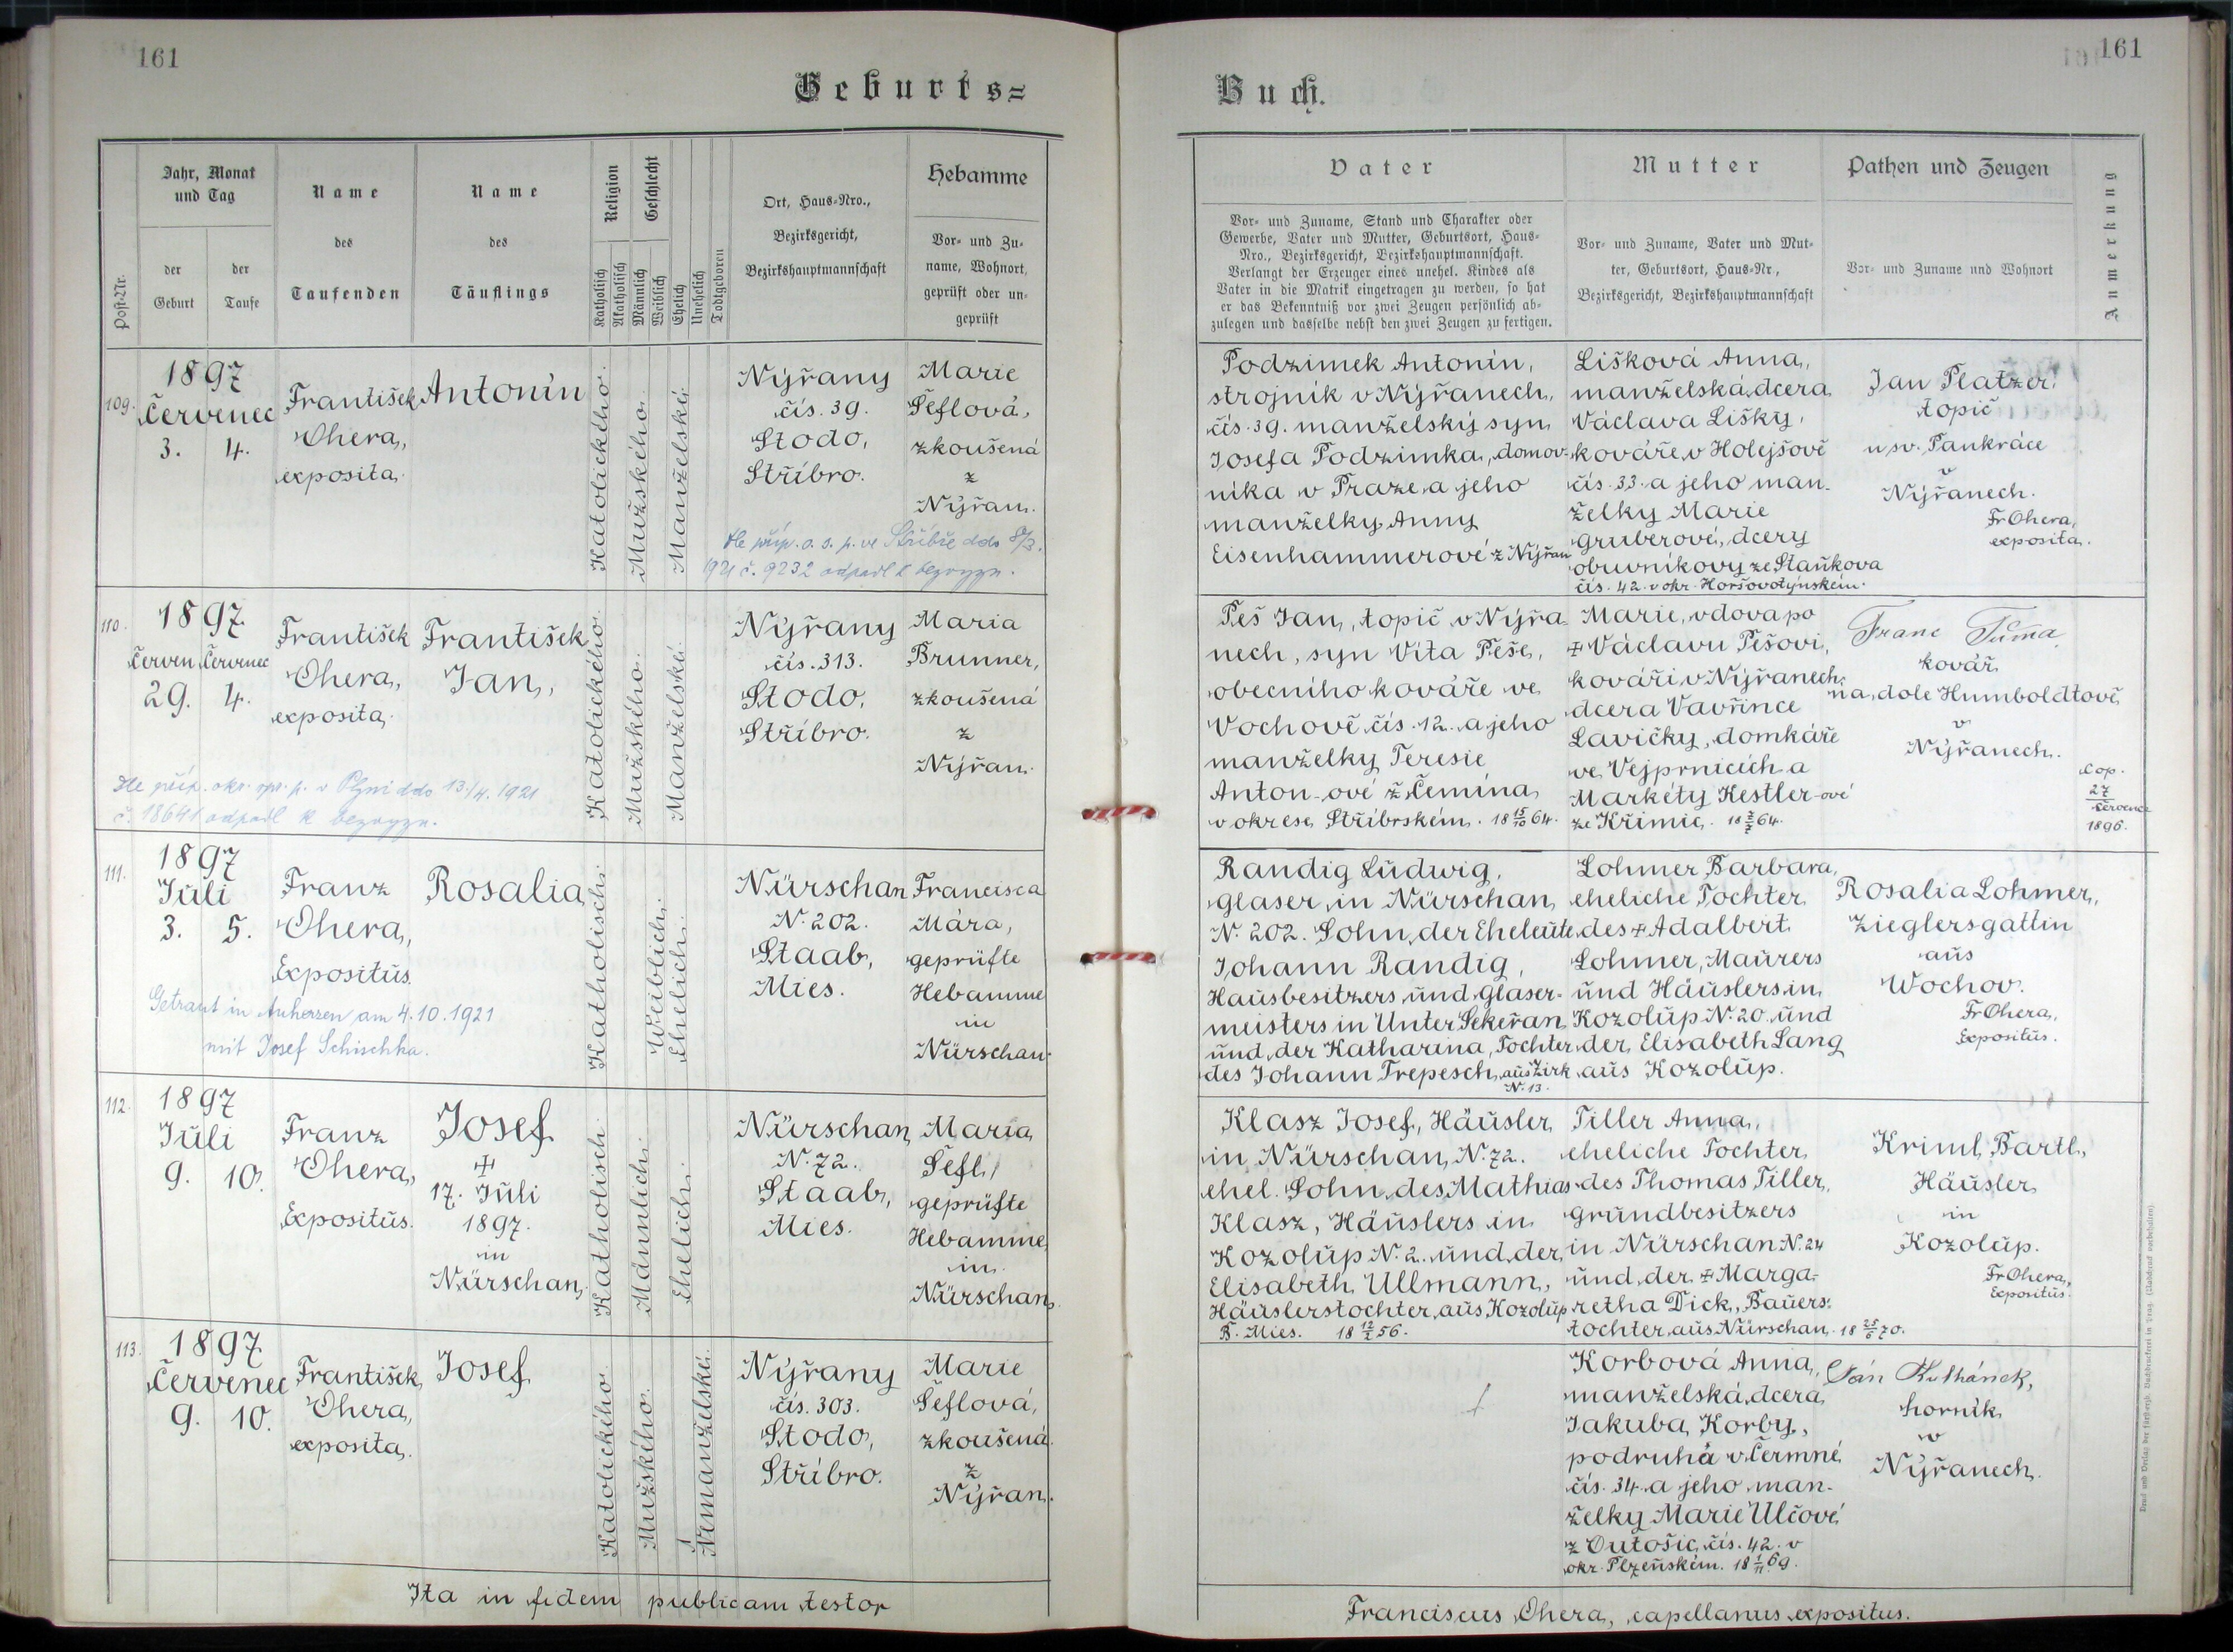 161
Geburts=
Jahr, Monat
und Tag
Name
des
Taufenden
Name
des
Täuflings
Religion
Geschlecht
Ort, Haus=Nro.,
Bezirksgericht,
Bezirkshauptmannschaft
Hebamme
Post-Nr.
der
Geburt
der
Taufe
Katholisch
Akatholisch
Männlich
Weiblich
Ehelich
Unehelich
Todtgeboren
Vor= und Zu=
name, Wohnort,
geprüft oder un=
geprüft
109.
1897
Červenec
3. 4.
František
Ohera,
exposita.
Antonín
Katolického.
Mužského.
Manželské.
Nýřany
čís. 39.
Stodo,
Stříbro.
Marie
Šeflová,
zkoušená
z
Nýřan.
dle příp. o. s. p. ve Stříbře ddo 8/3.
1921 č. 9232 odpadl k bezvyzn.
110.
1897.
Červen Červenec
29. 4.
František
Ohera,
exposita.
František
Jan,
Katolického.
Mužského.
Manželské.
Nýřany
čís. 313.
Stodo,
Stříbro.
Maria
Brunner,
zkoušená
z
Nýřan.
Dle příp. okr. spr. p. v Plzni ddo 13./4. 1921
č. 18641 odpadl k bezvyzn.
111.
1897
Juli
3. 5.
Franz
Ohera,
Expositus.
Rosalia
Katholisch.
Weiblich.
Ehelich.
Nürschan
N. 202.
Staab,
Mies.
Francisca
Mára,
geprüfte
Hebamme
in
Nürschan.
Getraut in Auherzen am 4.10.1921
mit Josef Schischka.
112.
1897
Juli
9. 10.
Franz
Ohera,
Expositus.
Josef
+
17. Juli
1897.
in
Nürschan.
Katholisch.
Männlich.
Ehelich.
Nürschan
N. 72.
Staab,
Mies.
Maria
Šefl,
geprüfte
Hebamme
in
Nürschan.
113.
1897
Červenec
9. 10.
František
Ohera,
exposita.
Josef
Katolického.
Mužského.
Nemanželské.
Nýřany
čís. 303.
Stodo,
Stříbro.
Marie
Šeflová,
zkoušená
z
Nýřan.
Ita in fidem publicam testor
161
Buch.
Vater
Mutter
Pathen und Zeugen
Anmerkung
Vor= und Zuname, Stand und Charakter oder
Gewerbe, Vater und Mutter, Geburtsort, Haus=
Nro., Bezirksgericht, Bezirkshauptmannschaft.
Verlangt der Erzeuger eines unehel. Kindes als
Vater in die Matrik eingetragen zu werden, so hat
er das Bekenntniß vor zwei Zeugen persönlich ab=
zulegen und dasselbe nebst den zwei Zeugen zu fertigen.
Vor= und Zuname, Vater und Mut=
ter, Geburtsort, Haus=Nr.,
Bezirksgericht, Bezirkshauptmannschaft
Vor= und Zuname und Wohnort
Podzimek Antonín,
strojník v Nýřanech,
čís. 39. manželský syn
Josefa Podzimka, domov-
níka v Praze a jeho
manželky Anny
Eisenhammerové z Nýřan
Lišková Anna,
manželská dcera
Václava Lišky,
kováře v Holejšově
čís. 33. a jeho man-
želky Marie
Gruberové, dcery
obuvníkovy ze Staňkova
čís. 42. v okr. Horšovotýnském.
Jan Platzer,
topič
u sv. Pankráce
v
Nýřanech.
Fr Ohera,
exposita.
Peš Jan, topič v Nýřa-
nech, syn Víta Peše,
obecního kováře ve
Vochově čís. 12. a jeho
manželky Teresie
Anton-ové z Čemína
v okrese Stříbrském. 18 15/10 64.
Marie, vdova po
+ Václavu Pešovi,
kováři v Nýřanech,
dcera Vavřince
Lavičky, domkáře
ve Vejprnicích a
Markéty Kestler-ové
ze Křimic. 18 2/7 64.
Franc Tůma
kovář
na dole Humboldtově
v
Nýřanech.
cop.
27
Července
1896.
Randig Ludwig,
Glaser in Nürschan
N. 202. Sohn der Eheleute
Johann Randig,
Hausbesitzers und Glaser-
meisters in Unter Sekeřan
und der Katharina, Tochter
des Johann Trepesch, aus Zirk
N. 13.
Lohmer Barbara,
eheliche Tochter
des + Adalbert
Lohmer, Maurers
und Häuslers in
Kozolup N. 20. und
der Elisabeth Lang
aus Kozolup.
Rosalia Lohmer,
Zieglersgattin
aus
Wochov.
Fr Ohera,
Expositus.
Klasz Josef, Häusler
in Nürschan, N. 72.
ehel. Sohn des Mathias
Klasz, Häuslers in
Kozolup N. 2. und der
Elisabeth Ullmann,
Häuslerstochter aus Kozolup
B. Mies. 18 12/2 56.
Tiller Anna,
eheliche Tochter
des Thomas Tiller,
Grundbesitzers
in Nürschan N. 24
und der + Marga-
retha Dick, Bauers-
tochter aus Nürschan. 18 25/6 70.
Kriml Bartl.,
Häusler
in
Kozolup.
Fr Ohera,
Expositus.
Korbová Anna,
manželská dcera
Jakuba Korby,
podruha v Čermné
čís. 34. a jeho man-
želky Marie Ulčové
z Outošic, čís. 42. v
okr. Plzeňském. 18 1/11 69.
Ján Kulhánek,
horník
v
Nýřanech.
Franciscus Ohera, capellanus expositus.